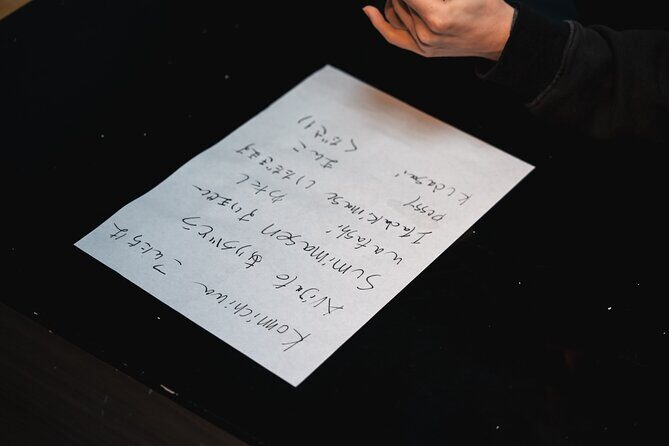 Konnichiwa こんにちは
Aligato ありがとう
Sumimasen すいません
watashi わたし
Itadakimase いただきます
まんこ
kudasai ください